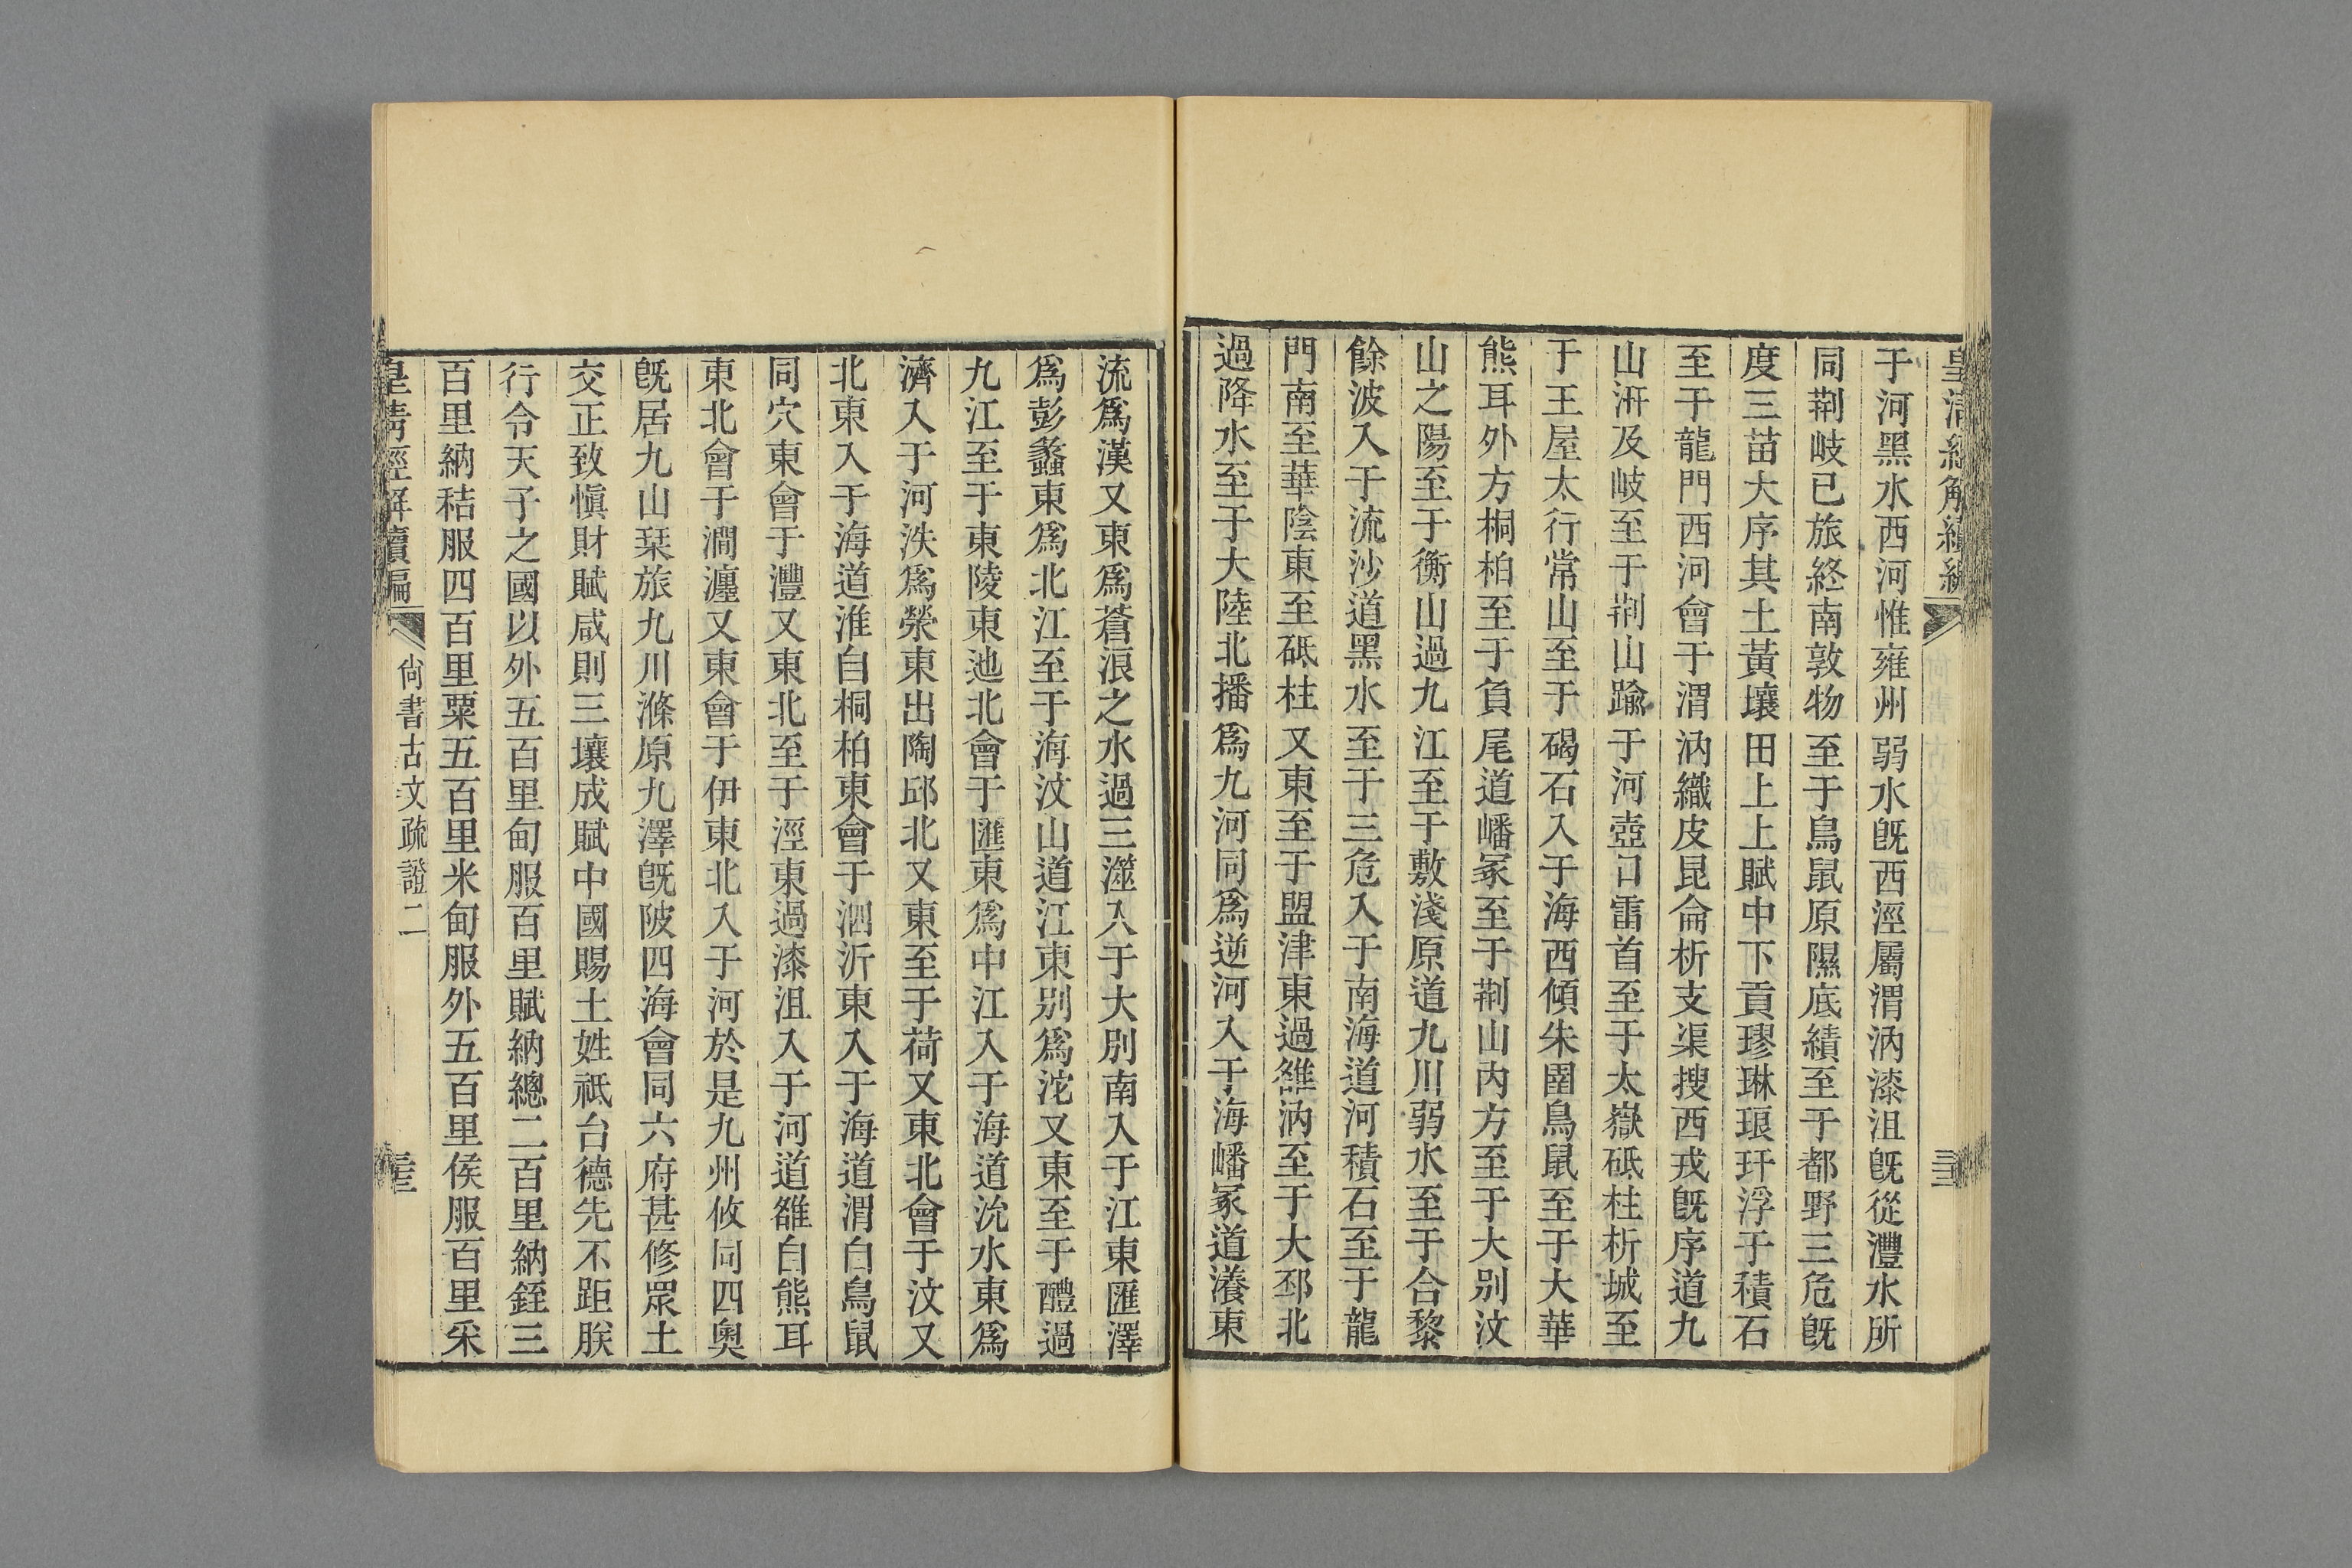 皇清經解續編
于河黑水西河惟雍州弱水旣西涇屬渭汭漆沮旣從灃水所
同荆岐已旅終南敦物至于鳥鼠原隰厎績至于都野三危旣
度三苗大序其土黃壤田上上賦中下貢璆琳琅玕浮于積石
至于龍門西河會于渭汭織皮昆侖析支渠搜西戎旣序道九
山汧及岐至于荆山踰于河壺口雷首至于太嶽砥柱析城至
于王屋太行常山至于碣石入于海西傾朱圉鳥鼠至于大華
熊耳外方桐柏至于負尾道嶓冢至于荆山內方至于大別汶
山之陽至于衡山過九江至于敷淺原道九川弱水至于合黎
餘波入于流沙道黑水至于三危入于南海道河積石至于龍
門南至華陰東至砥柱又東至于盟津東過雒汭至于大邳北
過降水至于大陸北播爲九河同爲逆河入于海嶓冢道瀁東
流爲漢又東爲蒼浪之水過三澨入于大別南入于江東匯澤
爲彭蠡東爲北江至于海汶山道江東別爲沱又東至于醴過
九江至于東陵東迆北會于匯東爲中江入于海道沇水東爲
濟入于河泆爲滎東出陶邱北又東至于荷又東北會于汶又
北東入于海道淮自桐柏東會于泗沂東入于海道渭自鳥鼠
同穴東會于灃又東北至于涇東過漆沮入于河道雒自熊耳
東北會于澗瀍又東會于伊東北入于河於是九州攸同四奧
旣居九山栞旅九川滌原九澤旣陂四海會同六府甚修眾土
交正致愼財賦咸則三壤成賦中國賜土姓祗台德先不距朕
行令天子之國以外五百里甸服百里賦納總二百里納銍三
百里納秸服四百里粟五百里米甸服外五百里侯服百里采
皇清經解續編 尙書古文疏證二